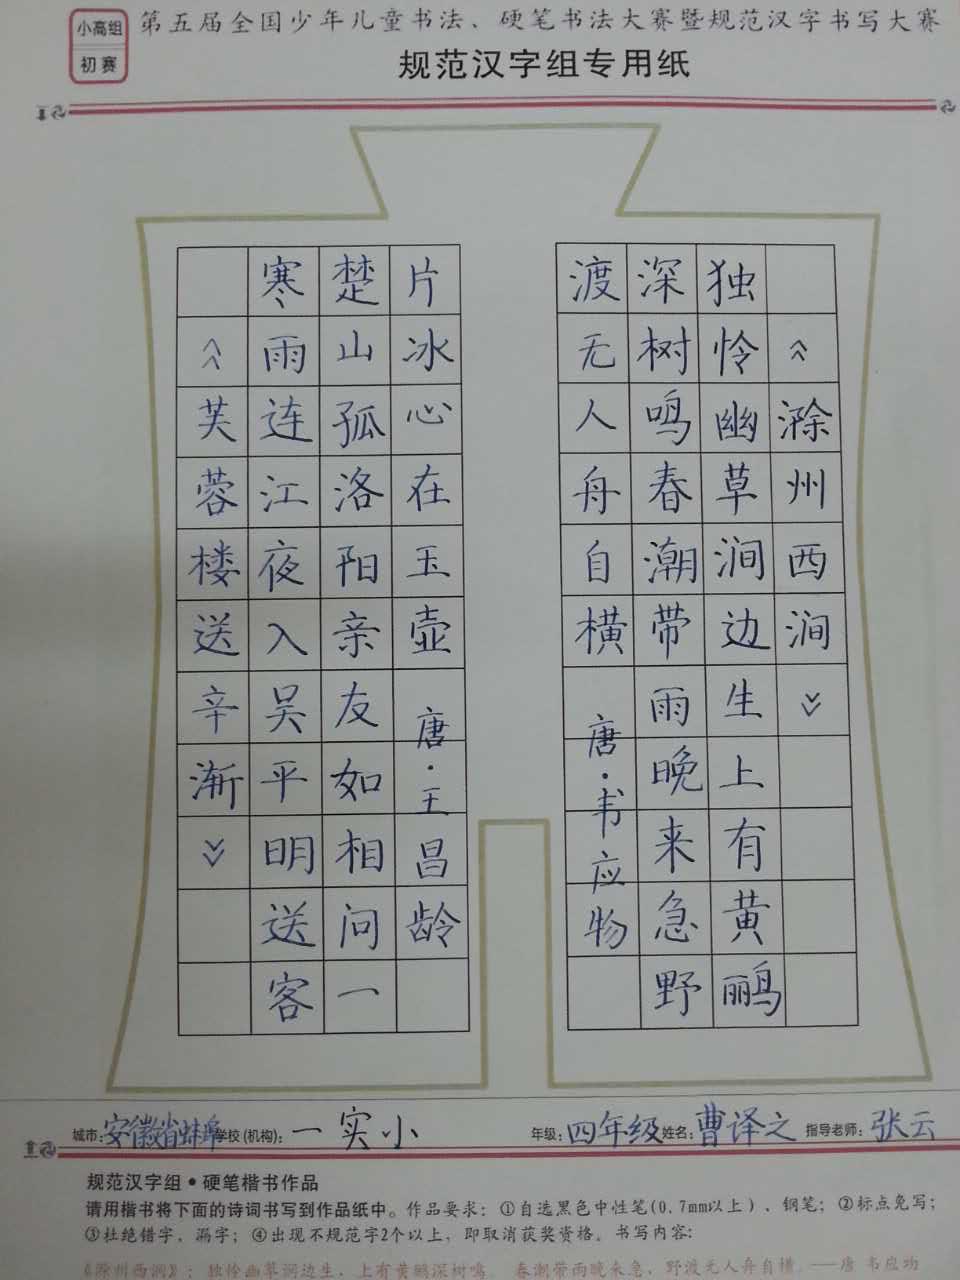 小高组
初赛
第五届全国少年儿童书法、硬笔书法大赛暨规范汉字书写大赛
规范汉字组专用纸
《滁州西涧》
独怜幽草涧边生上有黄鹂
深树鸣春潮带雨晚来急野
渡无人舟自横唐·韦应物
《芙蓉楼送辛渐》
寒雨连江夜入吴平明送客
楚山孤洛阳亲友如相问一
片冰心在玉壶唐·王昌龄
城市:安徽省蚌埠 学校(机构):一实小 年级:四年级 姓名:曹译之 指导老师:张云
规范汉字组•硬笔楷书作品
请用楷书将下面的诗词书写到作品纸中。作品要求：①自选黑色中性笔(0.7mm以上)、钢笔；②标点免写；
③杜绝错字，漏字；④出现不规范字2个以上，即取消获奖资格。书写内容：
《滁州西涧》：独怜幽草涧边生，上有黄鹂深树鸣。春潮带雨晚来急，野渡无人舟自横。——唐 韦应物